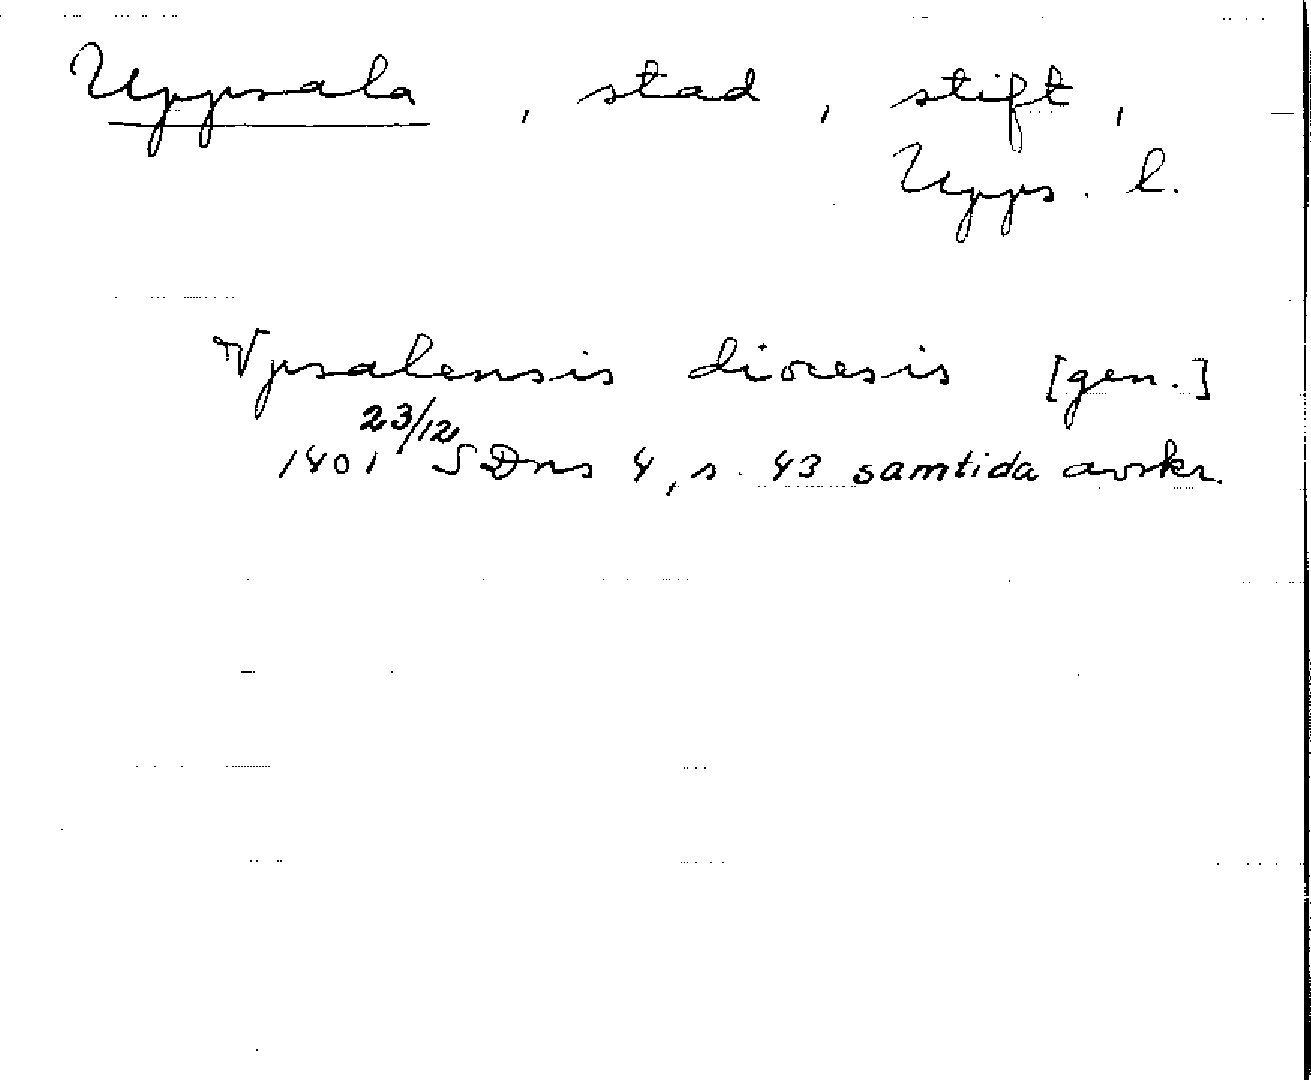 Uppsala, stad, stift,
Upps. l.
Vpsalensis diocesis [gen.]
1401 23/12 SDns 4, s. 43 samtida avskr.